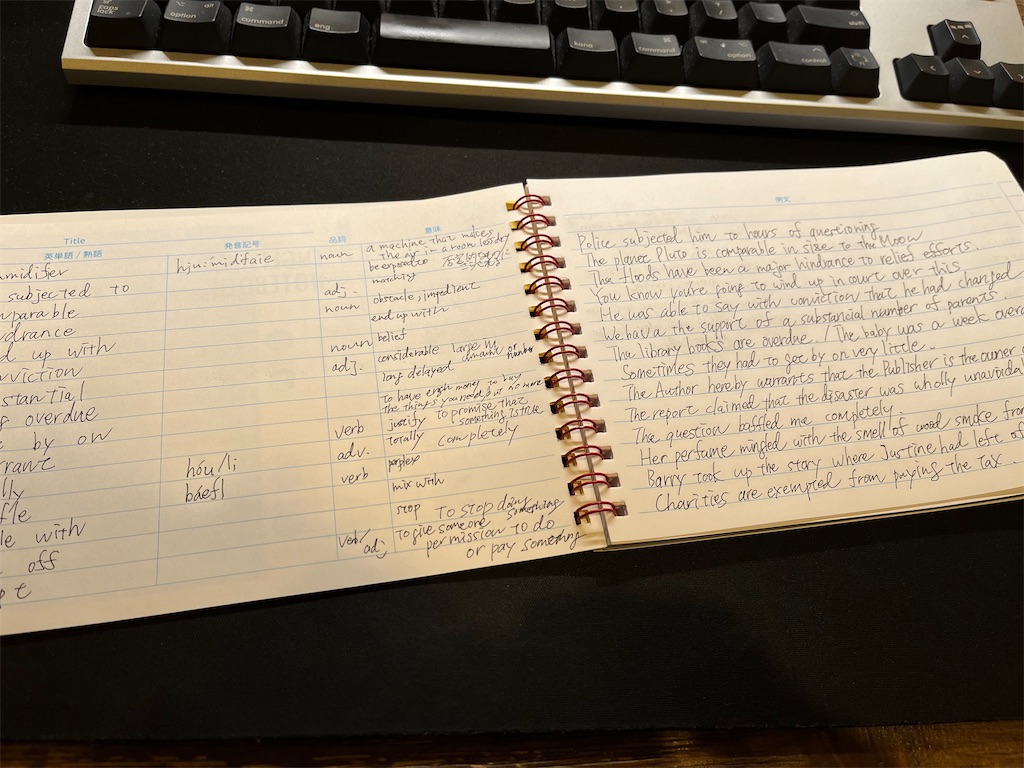 caps lock
alt
option
⌘
command
eng
kana
⌘
command
option
control
shift
Title
英単語 / 熟語
発音記号
品詞
意味
midifier
hju:midifaie
noun
a machine that makes
the air in a room less dry
subjected to
be exposed to
mparable
adj.
matching
drance
noun
obstacle, impedient
d up with
end up with
viction
noun
belief
stantial
adj.
considerable large in amount or number
g overdue
long delayed
by on
To have enough money to buy
the things you need, but no more
rrant
verb
justify to promise that
something is true
lly
hóu/li
adv.
totally completely
fle
báefl
verb
perplex
le with
mix with
off
stop to stop doing something
pt
verb/
adj
To give someone
permission to do
or pay something
例文
Police subjected him to hours of questioning
The planet Pluto is comparable in size to the Moow
The floods have been a major hindrance to relief efforts.
You know you're going to wind up in court over this
He was able to say with conviction that he had changed
We hava the support of a substancial number of parents.
Tha library books are overdue. / The baby was a week overd
Sometimes they had to get by on very little.
The Author hereby warrants that the Publisher is the owner o
The report claimed that the disaster was wholly unavoida
The question baffled me completely.
Her perfume mingled with the smell of wood smoke from
Barry took up the story where Justine had left of
Charities are exempted from paying the tax.